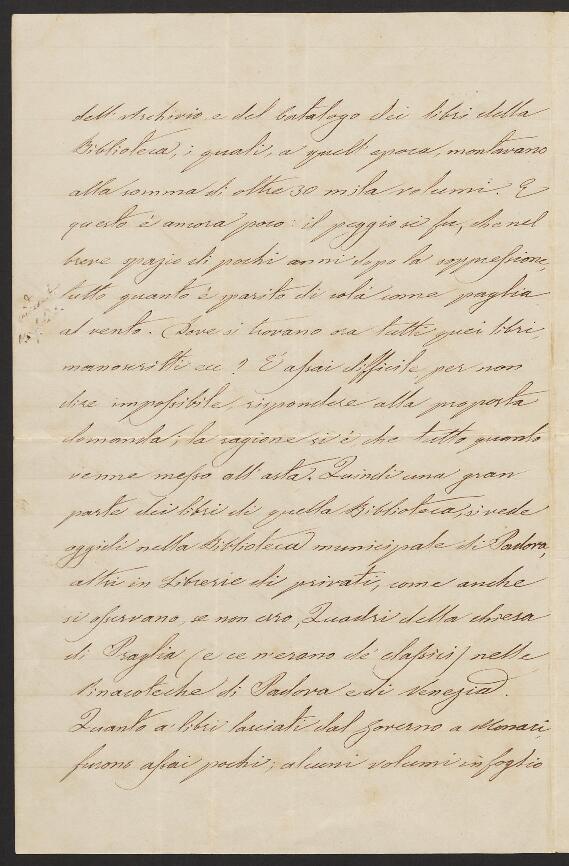 dell'Archivio e del Catalogo dei libri della
Biblioteca, i quali, a quell'epoca, montavano
alla somma di oltre 30 mila volumi. E
questo è ancora poco: il peggio si fu, che nel
breve spazio di pochi anni dopo la soppressione,
tutto quanto è sparito di colà come paglia
al vento. Dove si trovano ora tutti quei libri,
manoscritti ecc? È assai difficile per non
dire impossibile, rispondere alla proposta
domanda; la ragione si è che tutto quanto
venne messo all'asta. Quindi una gran
parte dei libri di quella Biblioteca, si vede
oggidì nella Biblioteca municipale di Padova,
altri in Librerie di privati, come anche
si osservano, se non erro, Quadri della chiesa
di Praglia (e ce n'erano de' classici) nelle
Pinacoteche di Padova e di Venezia.
Quanto a libri lasciati dal Governo a Monaci,
furono assai pochi; alcuni volumi in foglio